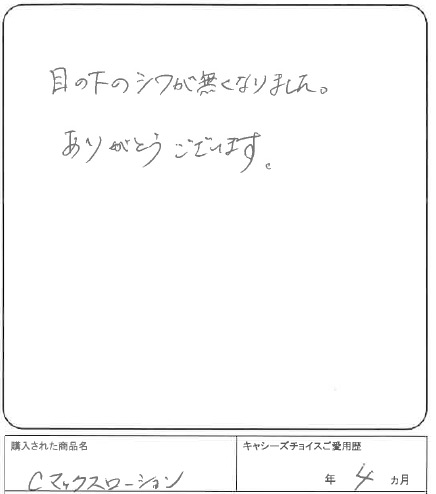 目の下のシワが無くなりました。
ありがとうございます。
購入された商品名
キャシーズチョイスご愛用歴
Cマックスローション
年 4 ヵ月